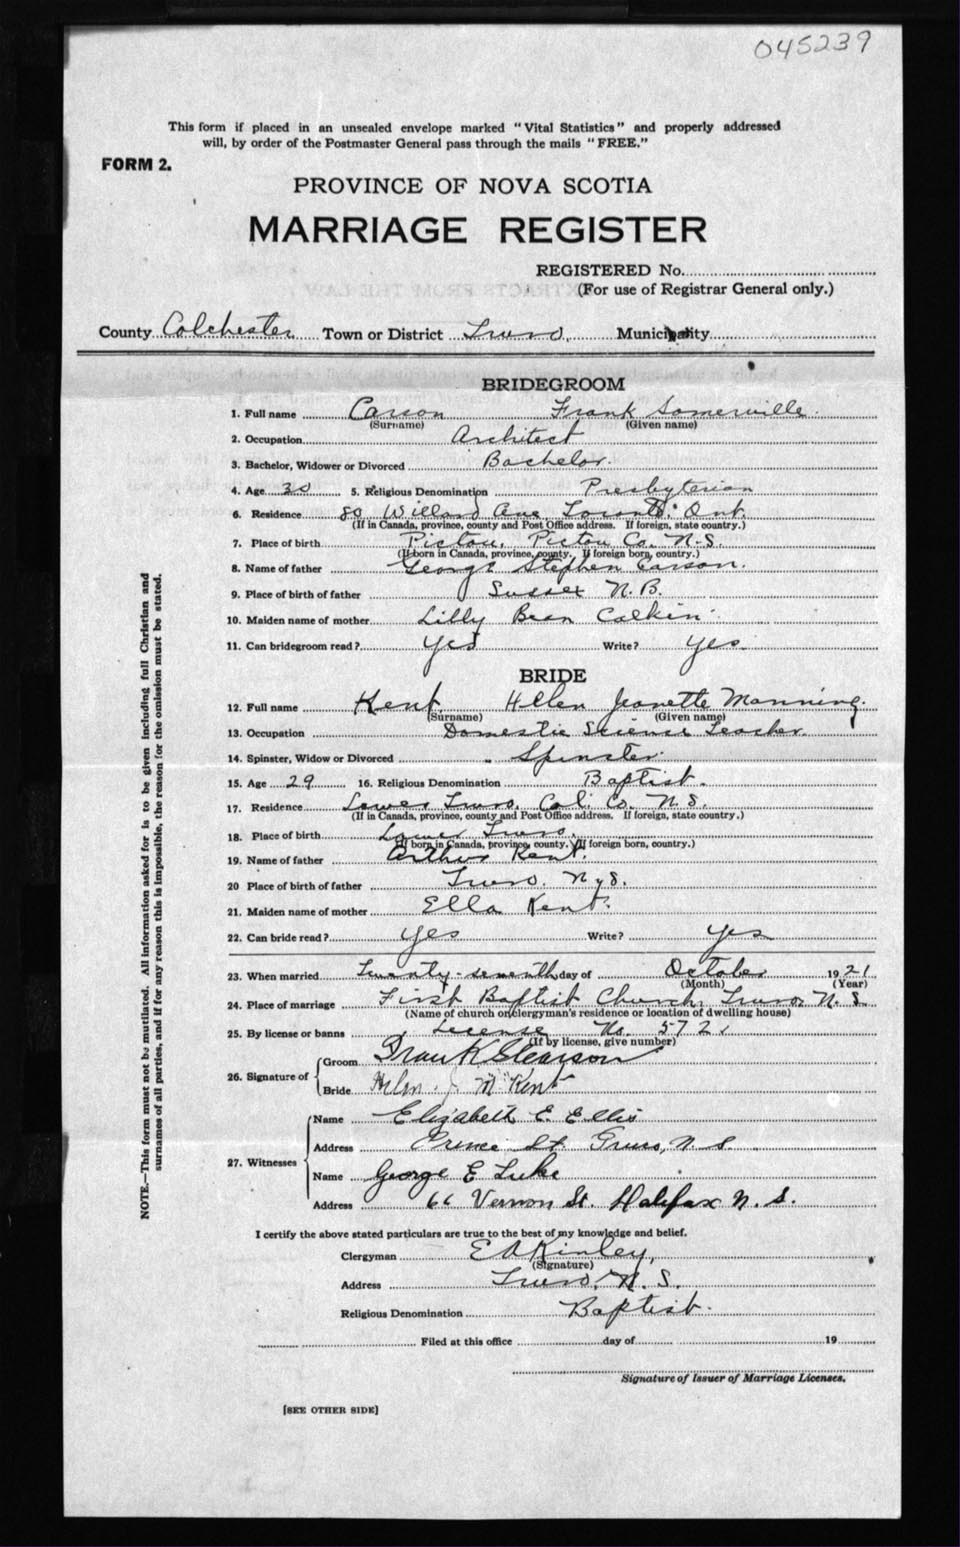 045239
This form if placed in an unsealed envelope marked "Vital Statistics" and properly addressed
will, by order of the Postmaster General pass through the mails "FREE."
FORM 2.
PROVINCE OF NOVA SCOTIA
MARRIAGE REGISTER
REGISTERED No.
(For use of Registrar General only.)
County Colchester Town or District Truro Municipality
BRIDEGROOM
1. Full name Carson Frank Somerville
(Surname) (Given name)
2. Occupation Architect
3. Bachelor, Widower or Divorced Bachelor.
4. Age 30 5. Religious Denomination Presbyterian
6. Residence 80 Willard Ave Toronto. Ont.
(If in Canada, province, county and Post Office address. If foreign, state country.)
7. Place of birth Pictou, Pictou Co. N.S.
(If born in Canada, province, county. If foreign born, country.)
8. Name of father George Stephen Carson.
9. Place of birth of father Sussex N.B.
10. Maiden name of mother Lilly Bean Calkin
11. Can bridegroom read? Yes Write? Yes
BRIDE
12. Full name Kent Helen Jeanette Manning.
(Surname) (Given name)
13. Occupation Domestic Science Teacher
14. Spinster, Widow or Divorced Spinster.
15. Age 29 16. Religious Denomination Baptist.
17. Residence Lower Truro, Col. Co. N.S.
(If in Canada, province, county and Post Office address. If foreign, state country.)
18. Place of birth Lower Truro,
(If born in Canada, province, county. If foreign born, country.)
19. Name of father Arthur Kent.
20 Place of birth of father Truro, N.S.
21. Maiden name of mother Ella Kent.
22. Can bride read? Yes Write? Yes
23. When married Twenty-seventh day of October 1921
(Month) (Year)
24. Place of marriage First Baptist Church, Truro, N.S.
(Name of church or clergyman's residence or location of dwelling house)
25. By license or banns License No. 5721
(If by license, give number)
26. Signature of Groom Frank S Carson
Bride Helen J. M. Kent
27. Witnesses
Name Elizabeth E. Ellis
Address Prince St. Truro, N.S.
Name George E Luke
Address 66 Vernon St. Halifax N.S.
I certify the above stated particulars are true to the best of my knowledge and belief.
Clergyman E A Kinley,
(Signature)
Address Truro, N.S.
Religious Denomination Baptist.
Filed at this office day of 19
Signature of Issuer of Marriage Licenses.
[SEE OTHER SIDE]
NOTE.—This form must not be mutilated. All information asked for is to be given including full Christian and
surnames of all parties, and if for any reason this is impossible, the reason for the omission must be stated.